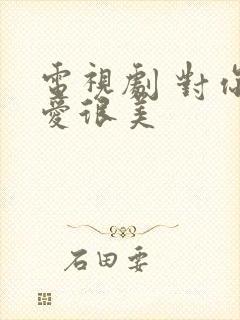 電視劇 對你
愛很美
石田要